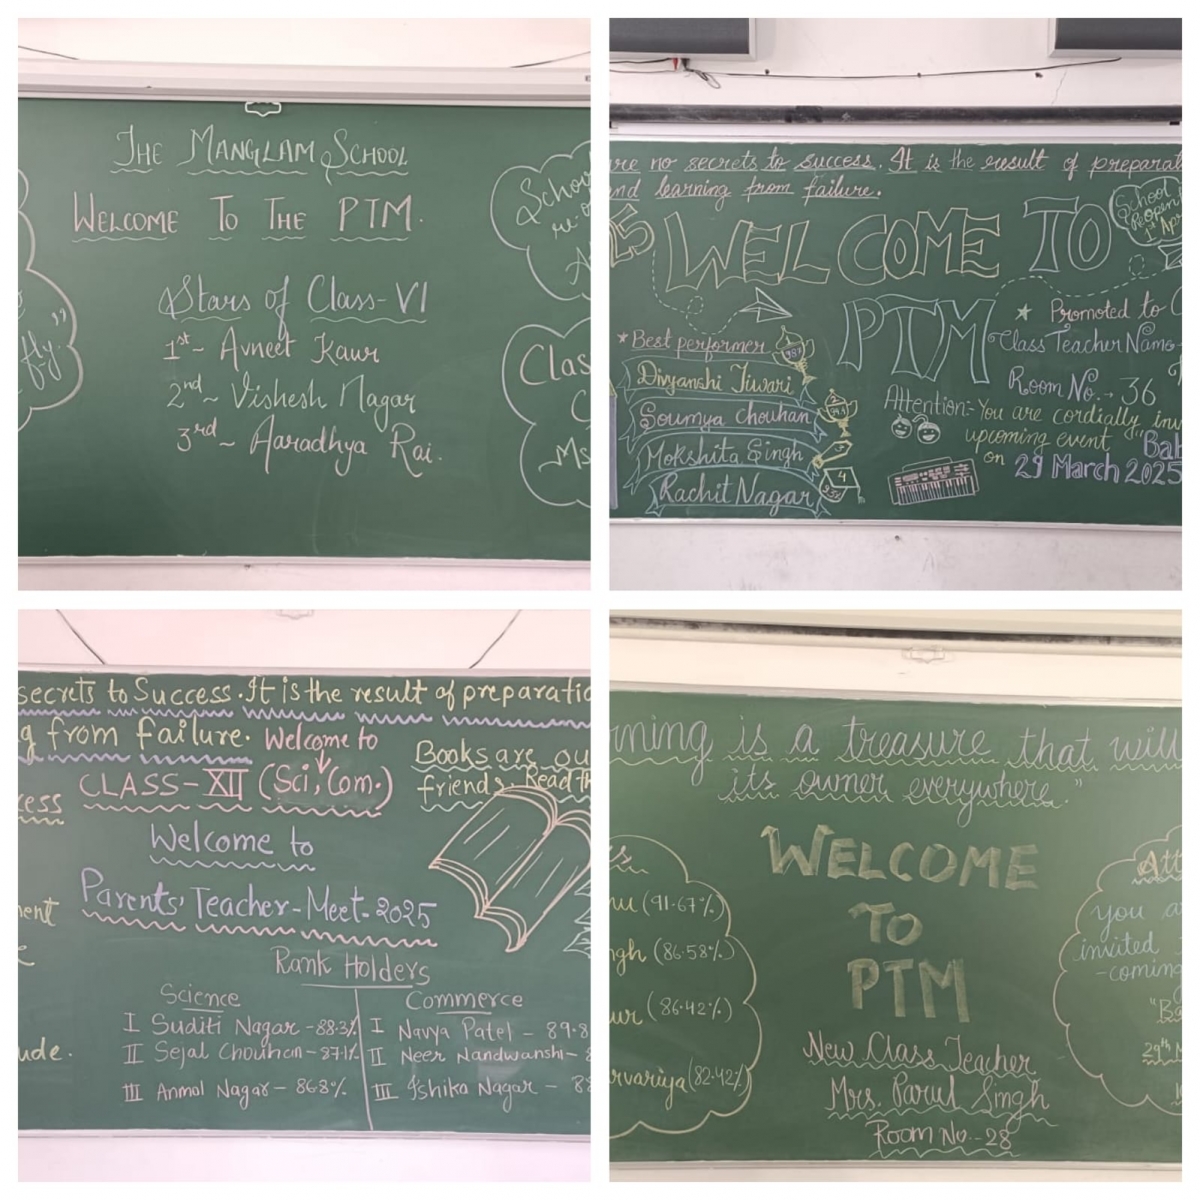 THE MANGLAM SCHOOL
WELCOME TO THE PTM.
Stars of Class-VI
1st ~ Avneet Kaur
2nd ~ Vishesh Nagar
3rd ~ Aaradhya Rai.
fly."
School
re-o
A
Clas
C
Ms
are no secrets to success. It is the result of preparat
and learning from failure.
WELCOME TO
PTM
School
Reopen
1st Apr
*Best performer
98.7
Divyanshi Tiwari
2
Soumya Chouhan
3
Mokshita Singh
4
Rachit Nagar
* Promoted to C
Class Teacher Name-
Room No. - 36
Attention:- You are cordially inv
upcoming event
on 29 March 2025
secrets to Success. It is the result of preparatio
g from failure.
Welcome to
CLASS-XII (Sci, Com.)
cess
Books are ou
friends. Read Th
Welcome to
Parents' Teacher-Meet-2025
ment
ude.
Rank Holders
Science
I Suditi Nagar - 88.3%
II Sejal Chouhan - 87.1%
III Anmol Nagar - 86.8%
Commerce
I Navya Patel - 89.8
II Neer Nandwanshi - 8
III Ishika Nagar - 88
rning is a treasure that will
its owner everywhere."
WELCOME
TO
PTM
New Class Teacher
Mrs. Parul Singh
Room No.-28
rs
nu (91.67%)
ngh (86.58%)
ur (86.42%)
rvariya (82.42%)
Att
you a
invited
-coming
"Ba
29th M